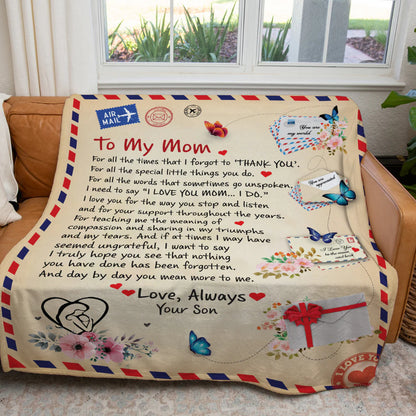 AIR MAIL
To My Mom
For all the times that I forgot to "THANK YOU'.
For all the special little things you do,
For all the words that sometimes go unspoken,
I need to say "I LOVE YOU MOM... I DO."
I love you for the way you stop and listen
and for your support throughout the years.
For teaching me the meaning of
compassion and sharing in my triumphs
and my tears. And if at times I may have
seemed ungrateful, I want to say
I truly hope you see that nothing
you have done has been forgotten.
And day by day you mean more to me.
Love, Always
Your Son
You are
my world
I Love You
to the moon
and back
I LOVE YOU